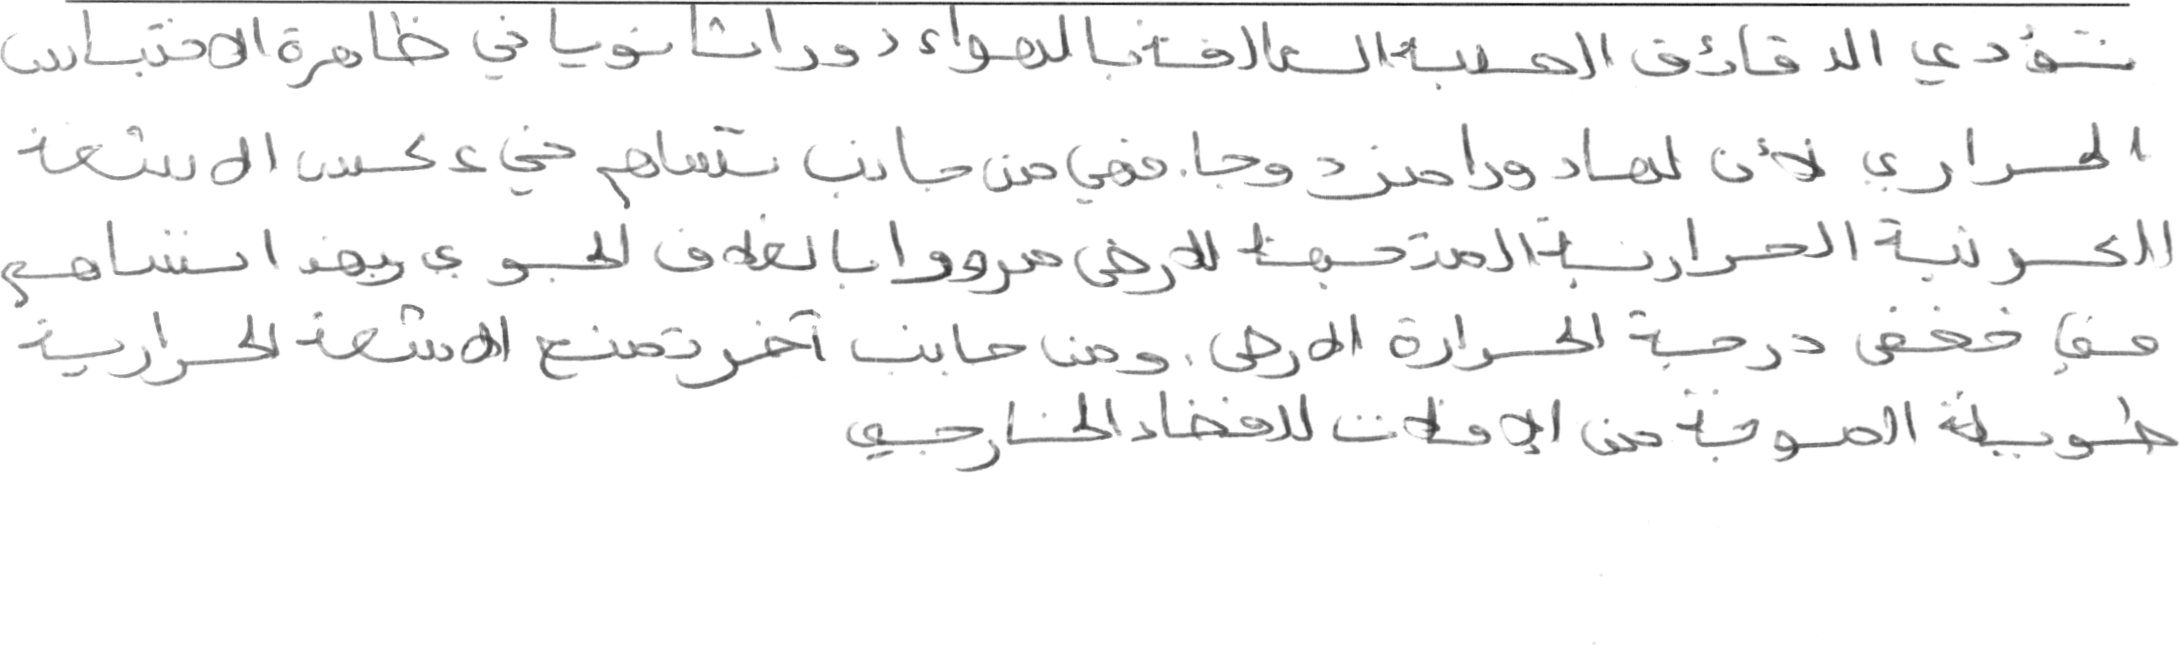 تؤدي الدقائق الصلبة العالقة بالهواء دورا ثانويا في ظاهرة الاحتباس
الحراري لأن لها دورا مزدوجا. فهي من جانب تساهم في عكس الاشعة
الكونية الحرارية المتجهة للارض مرورا بالغلاف الجوي وبهذا تساهم
في خفض درجة الحرارة الارض، ومن جانب آخر تمنع الاشعة الحرارية
طويلة الموجة من الإفلات للفضاء الخارجي